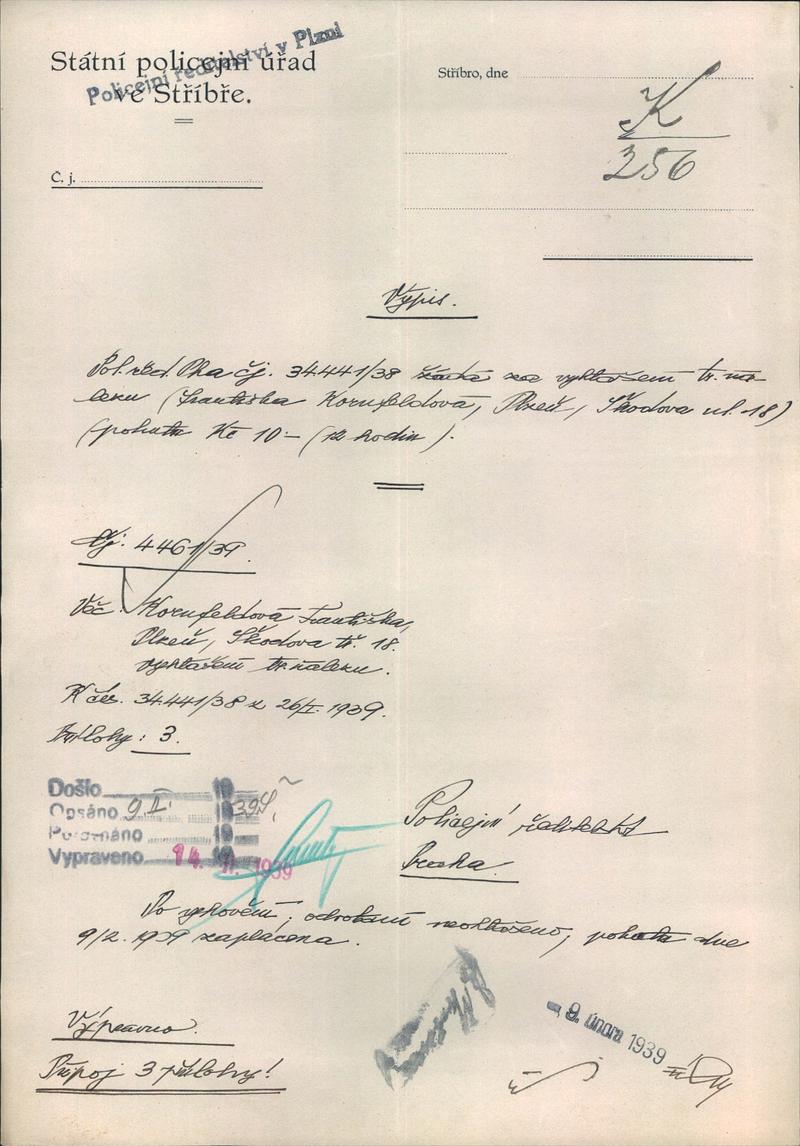 Státní policejní úřad
ve Stříbře.
Policejní ředitelství v Plzni
Stříbro, dne
K
356
Č. j.
Výpis.
Pol. řed. Pha čj. 34.441/38 žádá za vyhlášení tr. ná-
lezu (Františka Kornfeldová, Plzeň, Škodova ul. 18)
(pokuta Kč 10.- (12 hodin).
Čj: 4461/39.
Věc: Kornfeldová Františka,
Plzeň, Škodova tř. 18.
vyhlášení tr. nálezu.
K čís. 34.441/38 z 26/I. 1939.
Přílohy: 3.
Došlo 19
Opsáno 9.II. 1939
Porovnáno 19
Vypraveno 14. II. 1939
Policejní ředitelství
Praha.
Po vyhovění, odvolání neohlášeno, pokuta dne
9/2. 1939 zaplacena.
Výpravno.
Připoj 3 přílohy!
- 9. února 1939